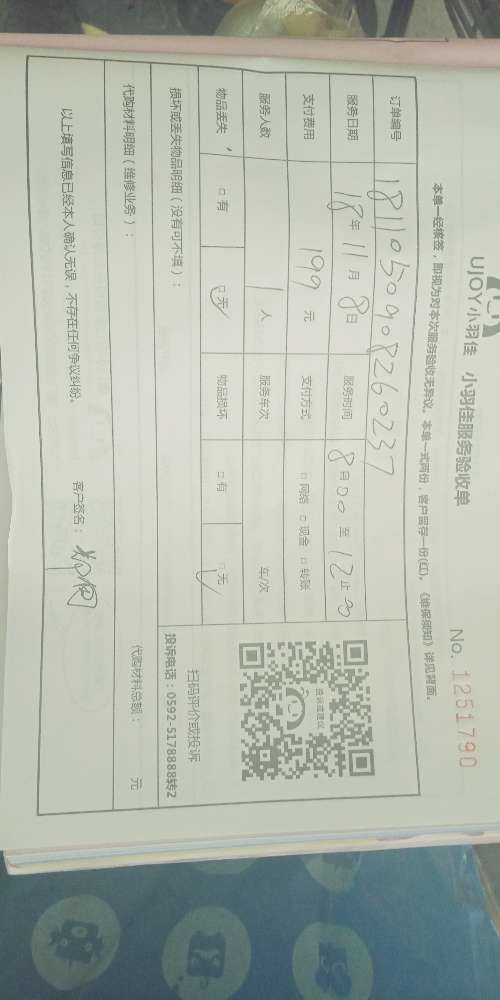 UJOY小羽佳 小羽佳服务验收单
No. 1251790
本单一经核签，即视为对本次服务验收无异议。本单一式两份，客户留存一份(红)。《维保须知》详见背面。
订单编号 1811050908260237
服务日期 18年 11月 8日 服务时间 8点00 至 12止00
支付费用 199元 支付方式 □网络 □现金 □转账
服务人数 1人 服务车次 车/次
物品丢失 □有 □无 物品损坏 □有 □无
投诉或建议
扫码评价或投诉
投诉电话：0592-5178888转2
损坏或丢失物品明细（没有可不填）：
代购材料明细（维修业务）： 代购材料总额： 元
以上填写信息已经本人确认无误，不存在任何争议纠纷。 客户签名：